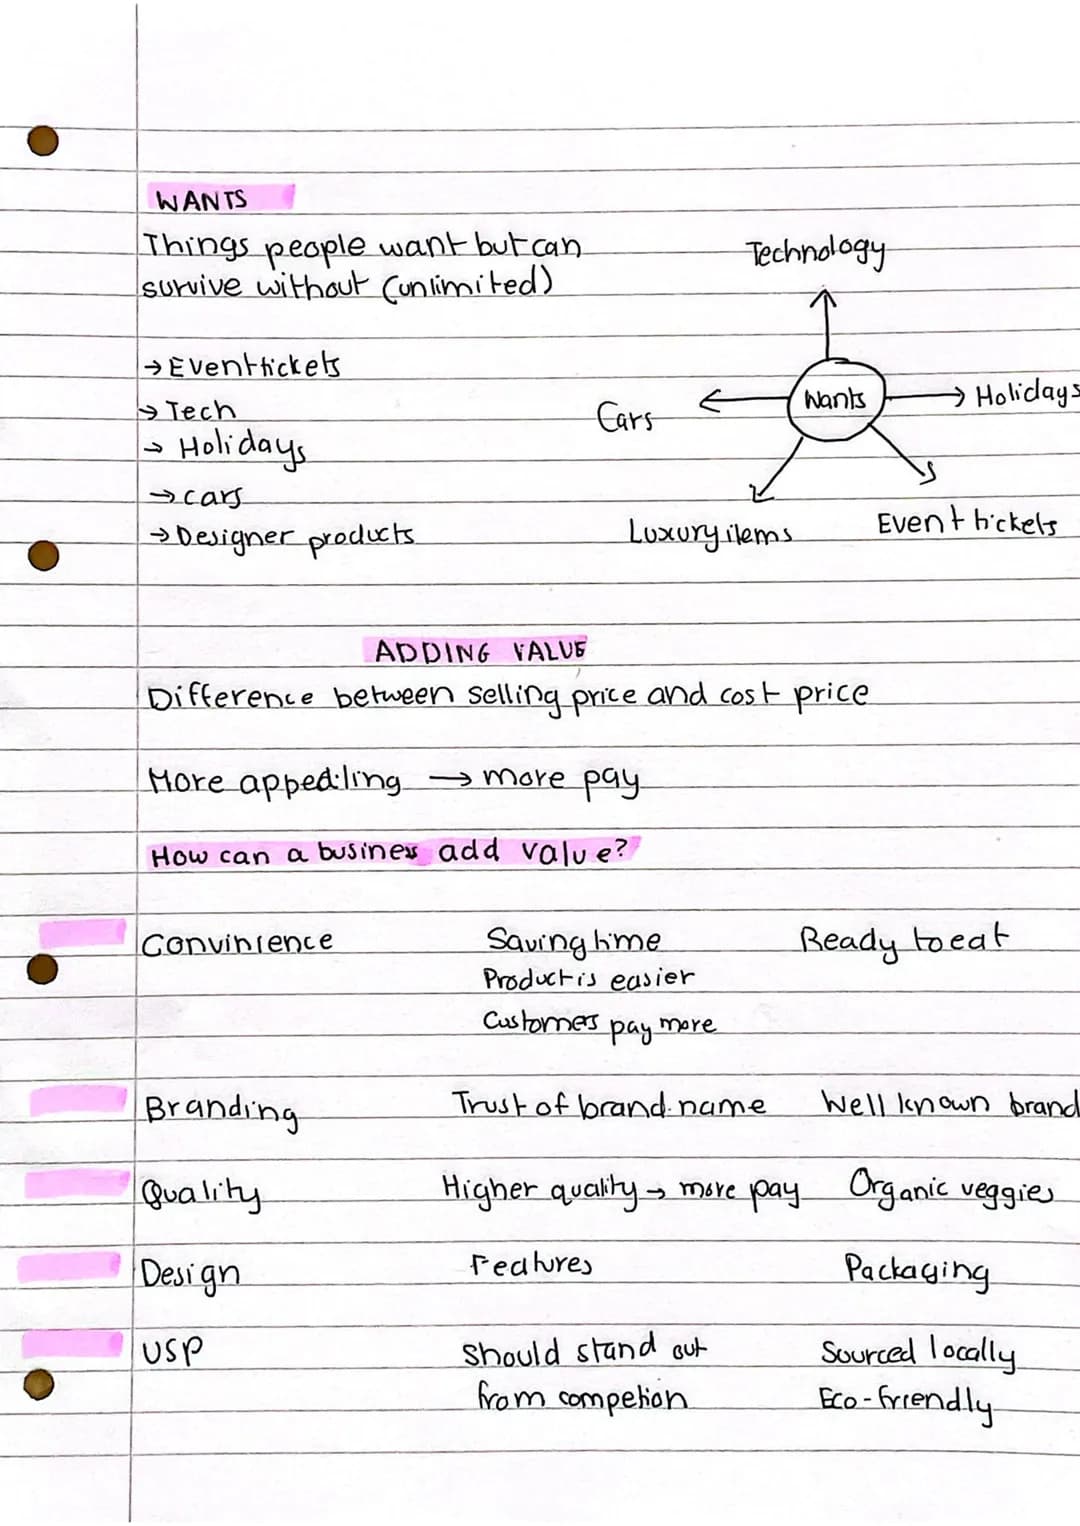 WANTS
Things people want but can
survive without (unlimited)
→ Event tickets
→ Tech
→ Holidays
→ cars
→ Designer products
Technology
Wants
→ Holidays
Cars
Luxury items
Event tickets
ADDING VALUE
Difference between selling price and cost price
More appealing → more pay
How can a business add value?
Convinience Saving time Ready to eat
Product is easier
Customers pay more
Branding Trust of brand name Well known brand
Quality Higher quality → more pay Organic veggies
Design Features Packaging
USP Should stand out Sourced locally
from competion Eco-friendly